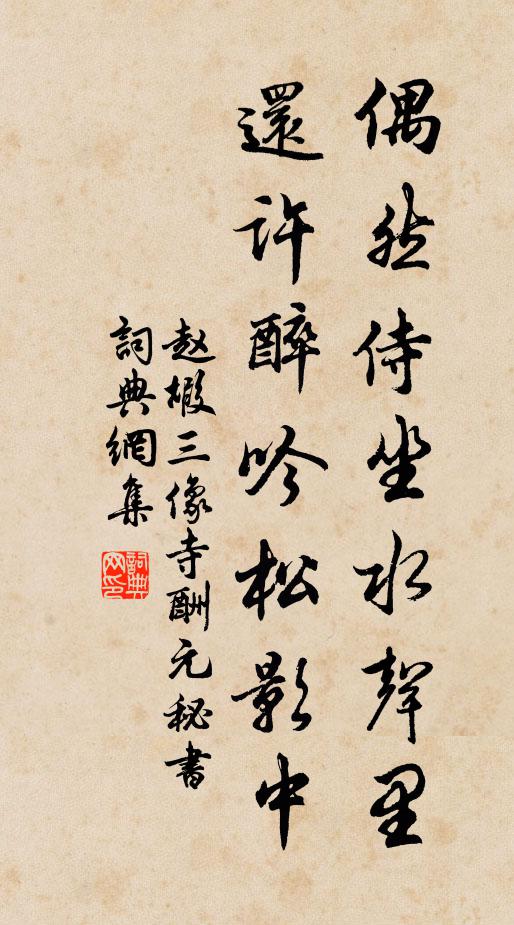 偶然侍坐水聲里
還許醉吟松影中
赵嘏三像寺酬元秘書
詞典網集
詞典网印